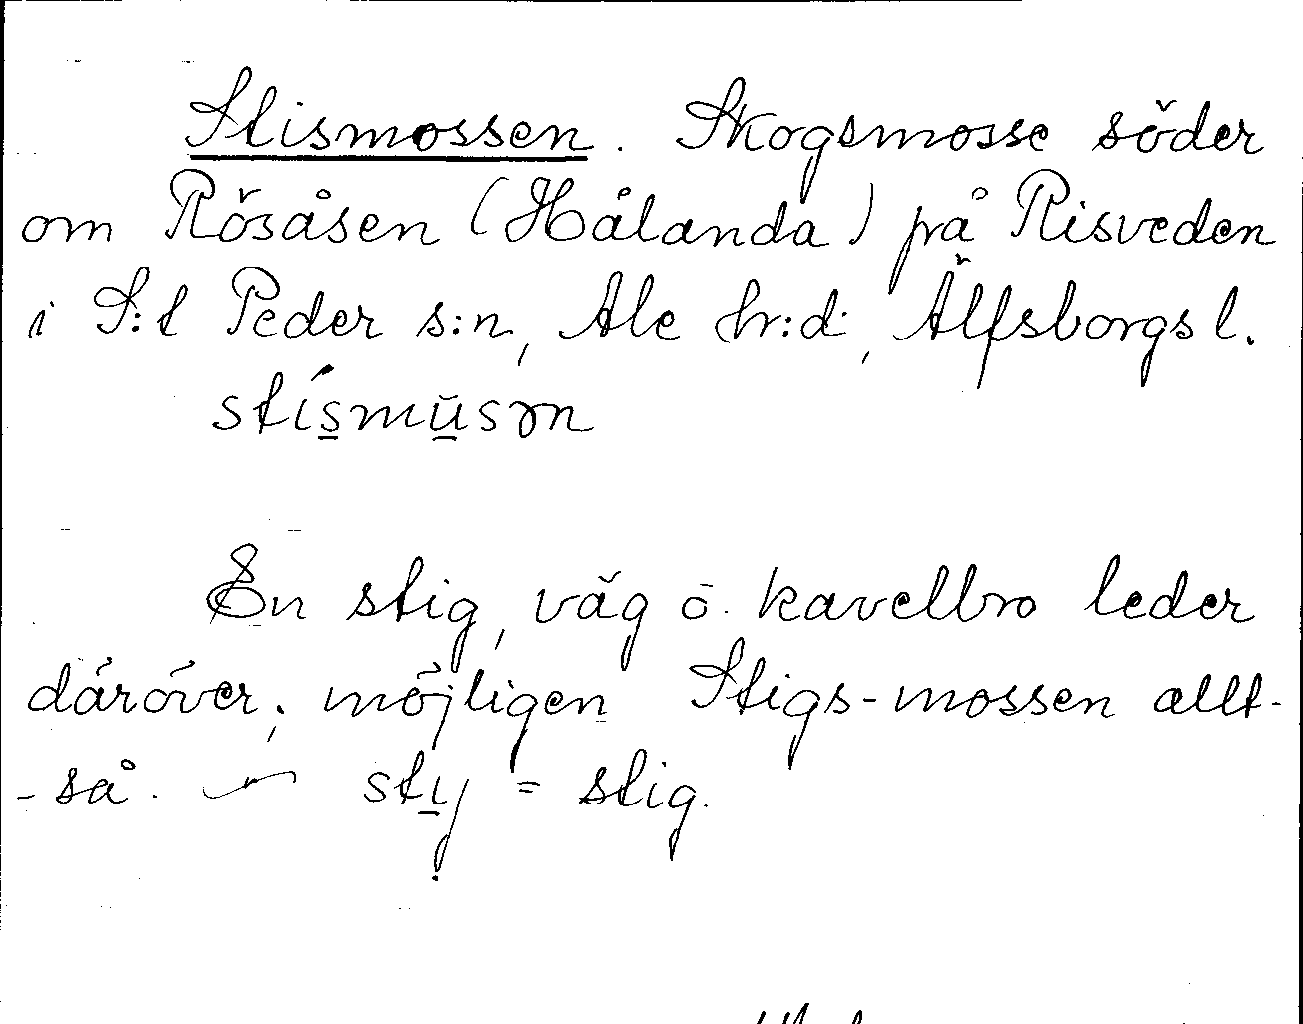 Stismossen. Skogsmosse söder
om Rösåsen (Hålanda) på Risveden
i S:t Peder s:n, Ale hr:d, Älfsborgs l.
stísmūsən
En stig, väg o. kavelbro leder
däröver; möjligen Stigs-mossen allt-
-så. — stịj = stig.